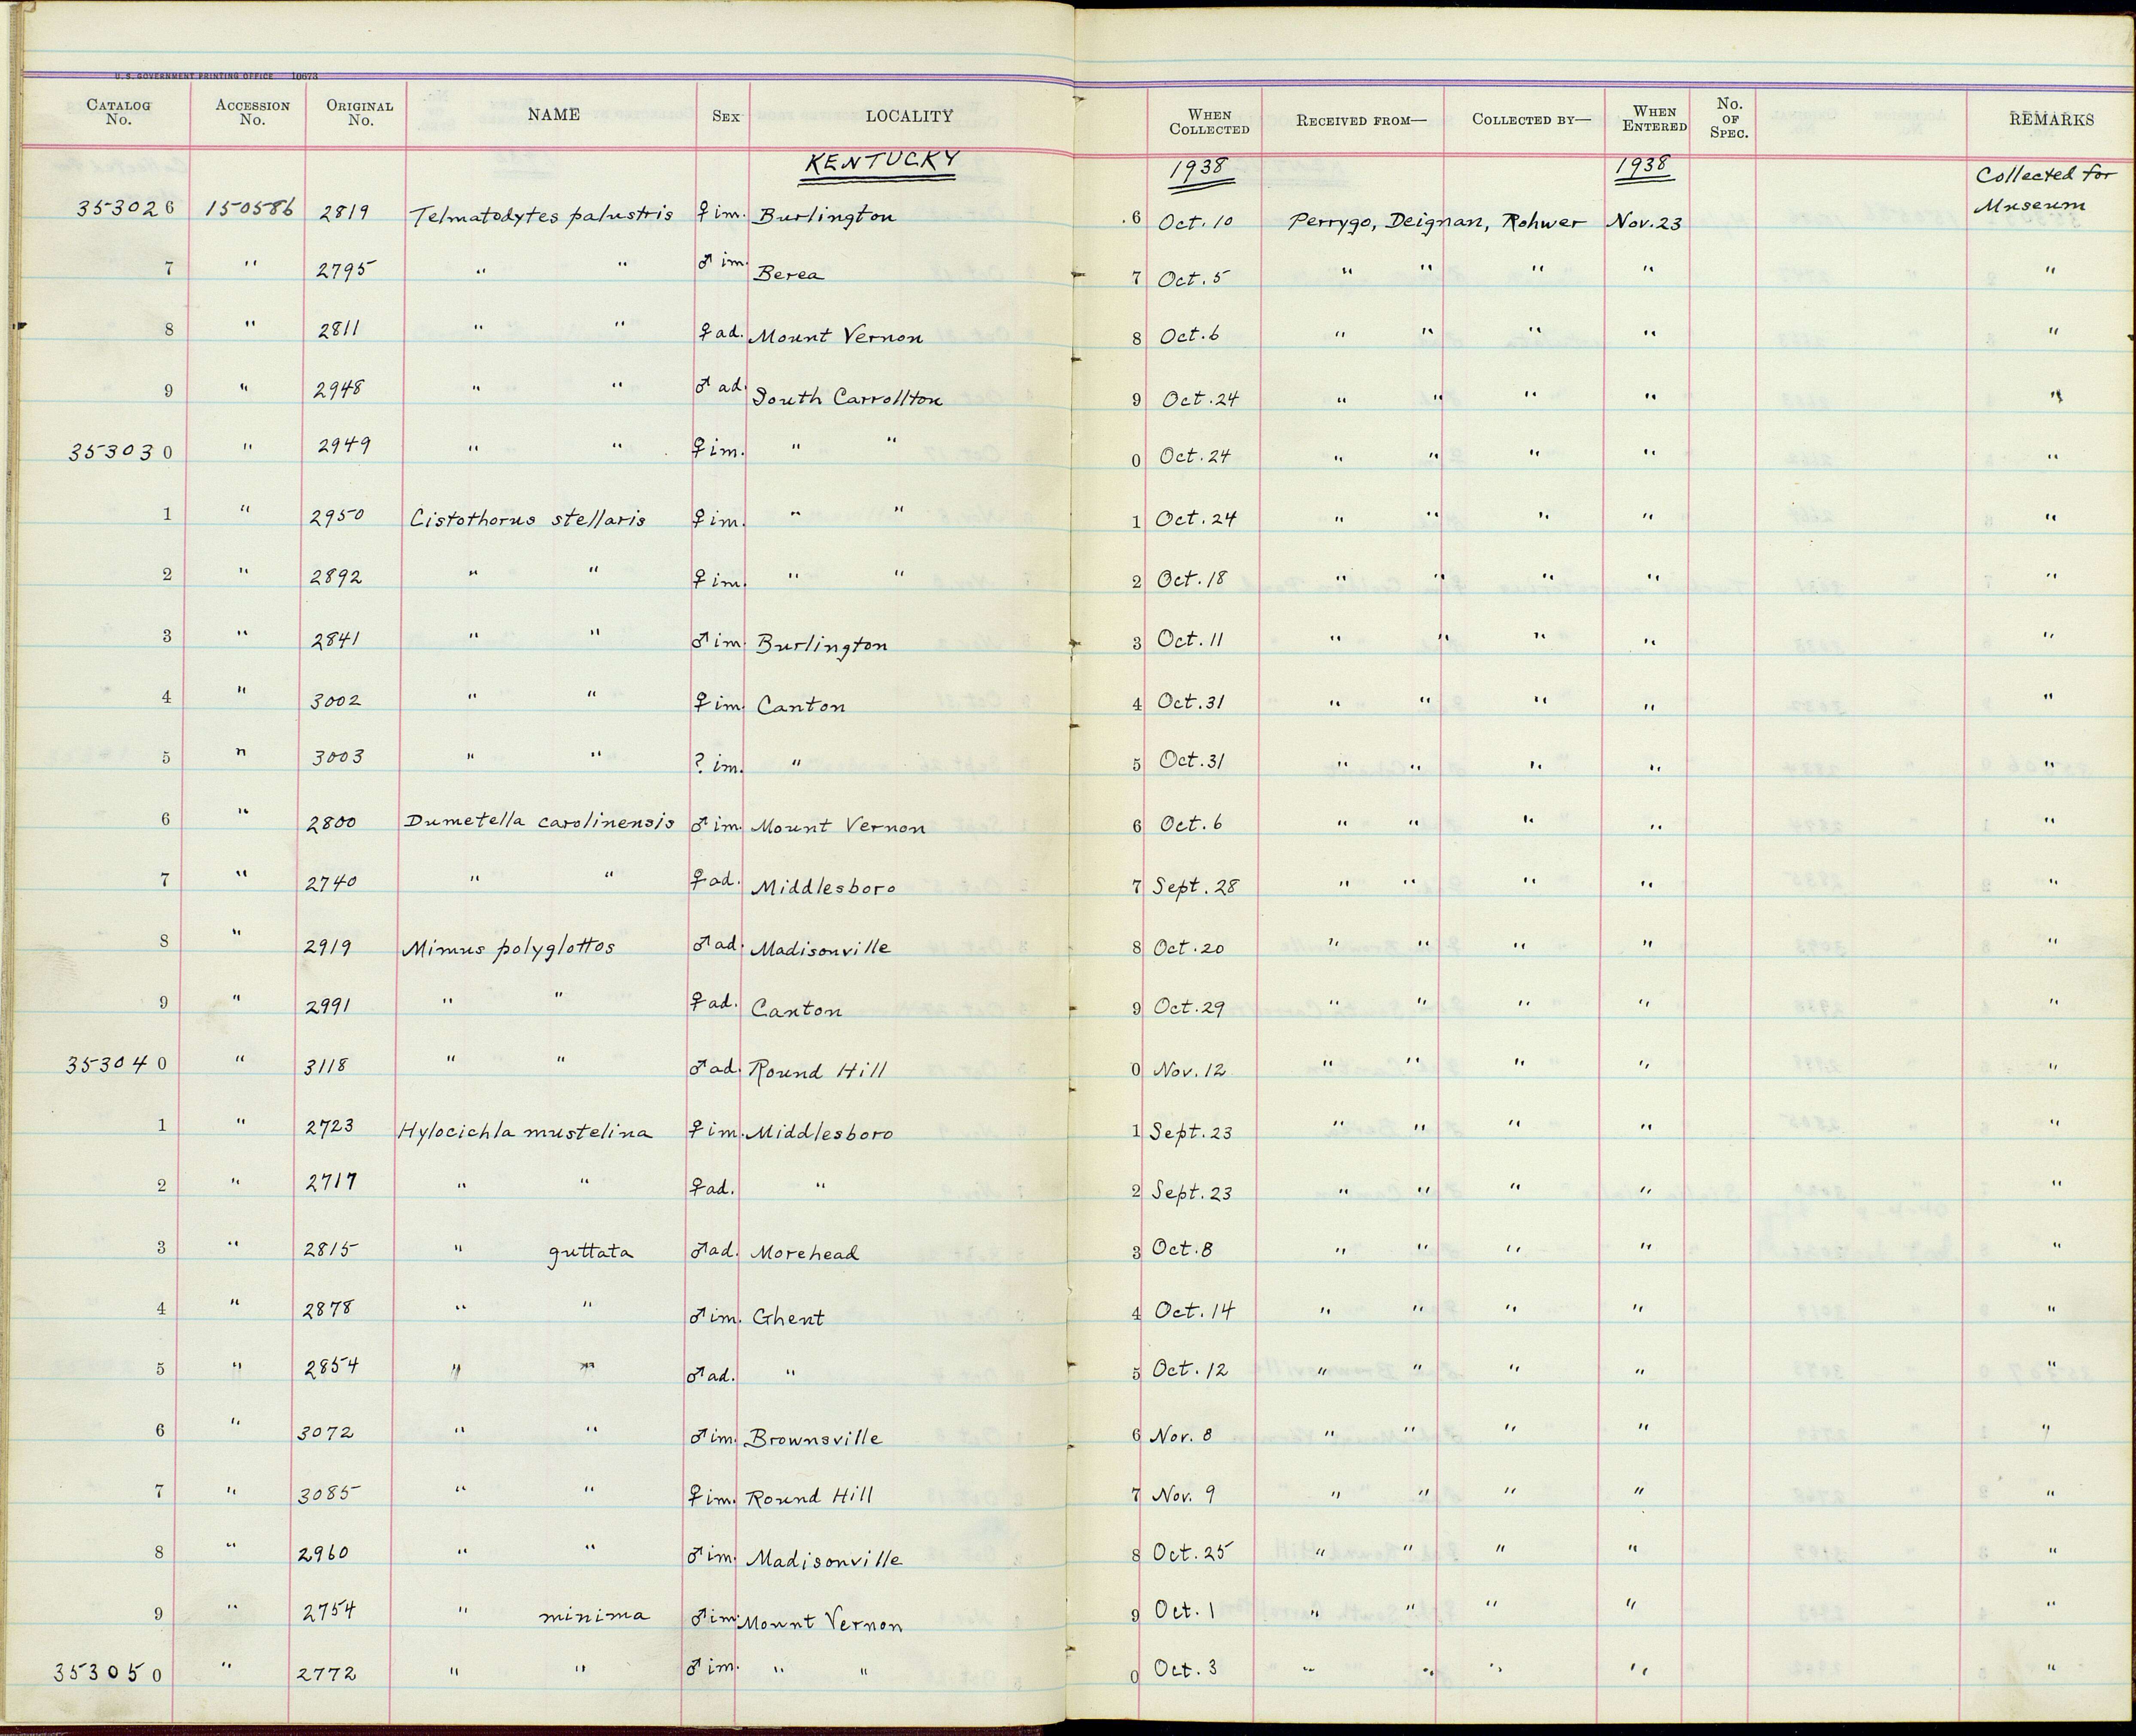 U.S. GOVERNMENT PRINTING OFFICE 10673
CATALOG No. ACCESSION No. ORIGINAL No. NAME SEX LOCALITY WHEN COLLECTED RECEIVED FROM— COLLECTED BY— WHEN ENTERED No. OF SPEC. REMARKS
KENTUCKY 1938 1938 Collected for Museum
353026 150586 2819 Telmatodytes palustris ♀ im. Burlington 6 Oct. 10 Perrygo, Deignan, Rohwer Nov. 23
7 " 2795 " " ♂ im. Berea 7 Oct. 5 " " " " "
8 " 2811 " " ♀ ad. Mount Vernon 8 Oct. 6 " " " " "
9 " 2948 " " ♂ ad. South Carrollton 9 Oct. 24 " " " " "
353030 " 2949 " " ♀ im. " " 0 Oct. 24 " " " " "
1 " 2950 Cistothorus stellaris ♀ im. " " 1 Oct. 24 " " " " "
2 " 2892 " " ♀ im. " " 2 Oct. 18 " " " " "
3 " 2841 " " ♂ im. Burlington 3 Oct. 11 " " " " "
4 " 3002 " " ♀ im. Canton 4 Oct. 31 " " " " "
5 " 3003 " " ? im. " 5 Oct. 31 " " " " "
6 " 2800 Dumetella carolinensis ♂ im. Mount Vernon 6 Oct. 6 " " " " "
7 " 2740 " " ♀ ad. Middlesboro 7 Sept. 28 " " " " "
8 " 2919 Mimus polyglottos ♂ ad. Madisonville 8 Oct. 20 " " " " "
9 " 2991 " " ♀ ad. Canton 9 Oct. 29 " " " " "
353040 " 3118 " " ♂ ad. Round Hill 0 Nov. 12 " " " " "
1 " 2723 Hylocichla mustelina ♀ im. Middlesboro 1 Sept. 23 " " " " "
2 " 2717 " " ♀ ad. " 2 Sept. 23 " " " " "
3 " 2815 " guttata ♂ ad. Morehead 3 Oct. 8 " " " " "
4 " 2878 " " ♂ im. Ghent 4 Oct. 14 " " " " "
5 " 2854 " " ♂ ad. " 5 Oct. 12 " " " " "
6 " 3072 " " ♂ im. Brownsville 6 Nov. 8 " " " " "
7 " 3085 " " ♀ im. Round Hill 7 Nov. 9 " " " " "
8 " 2960 " " ♂ im. Madisonville 8 Oct. 25 " " " " "
9 " 2754 " minima ♂ im. Mount Vernon 9 Oct. 1 " " " " "
353050 " 2772 " " ♂ im. " " 0 Oct. 3 " " " " "